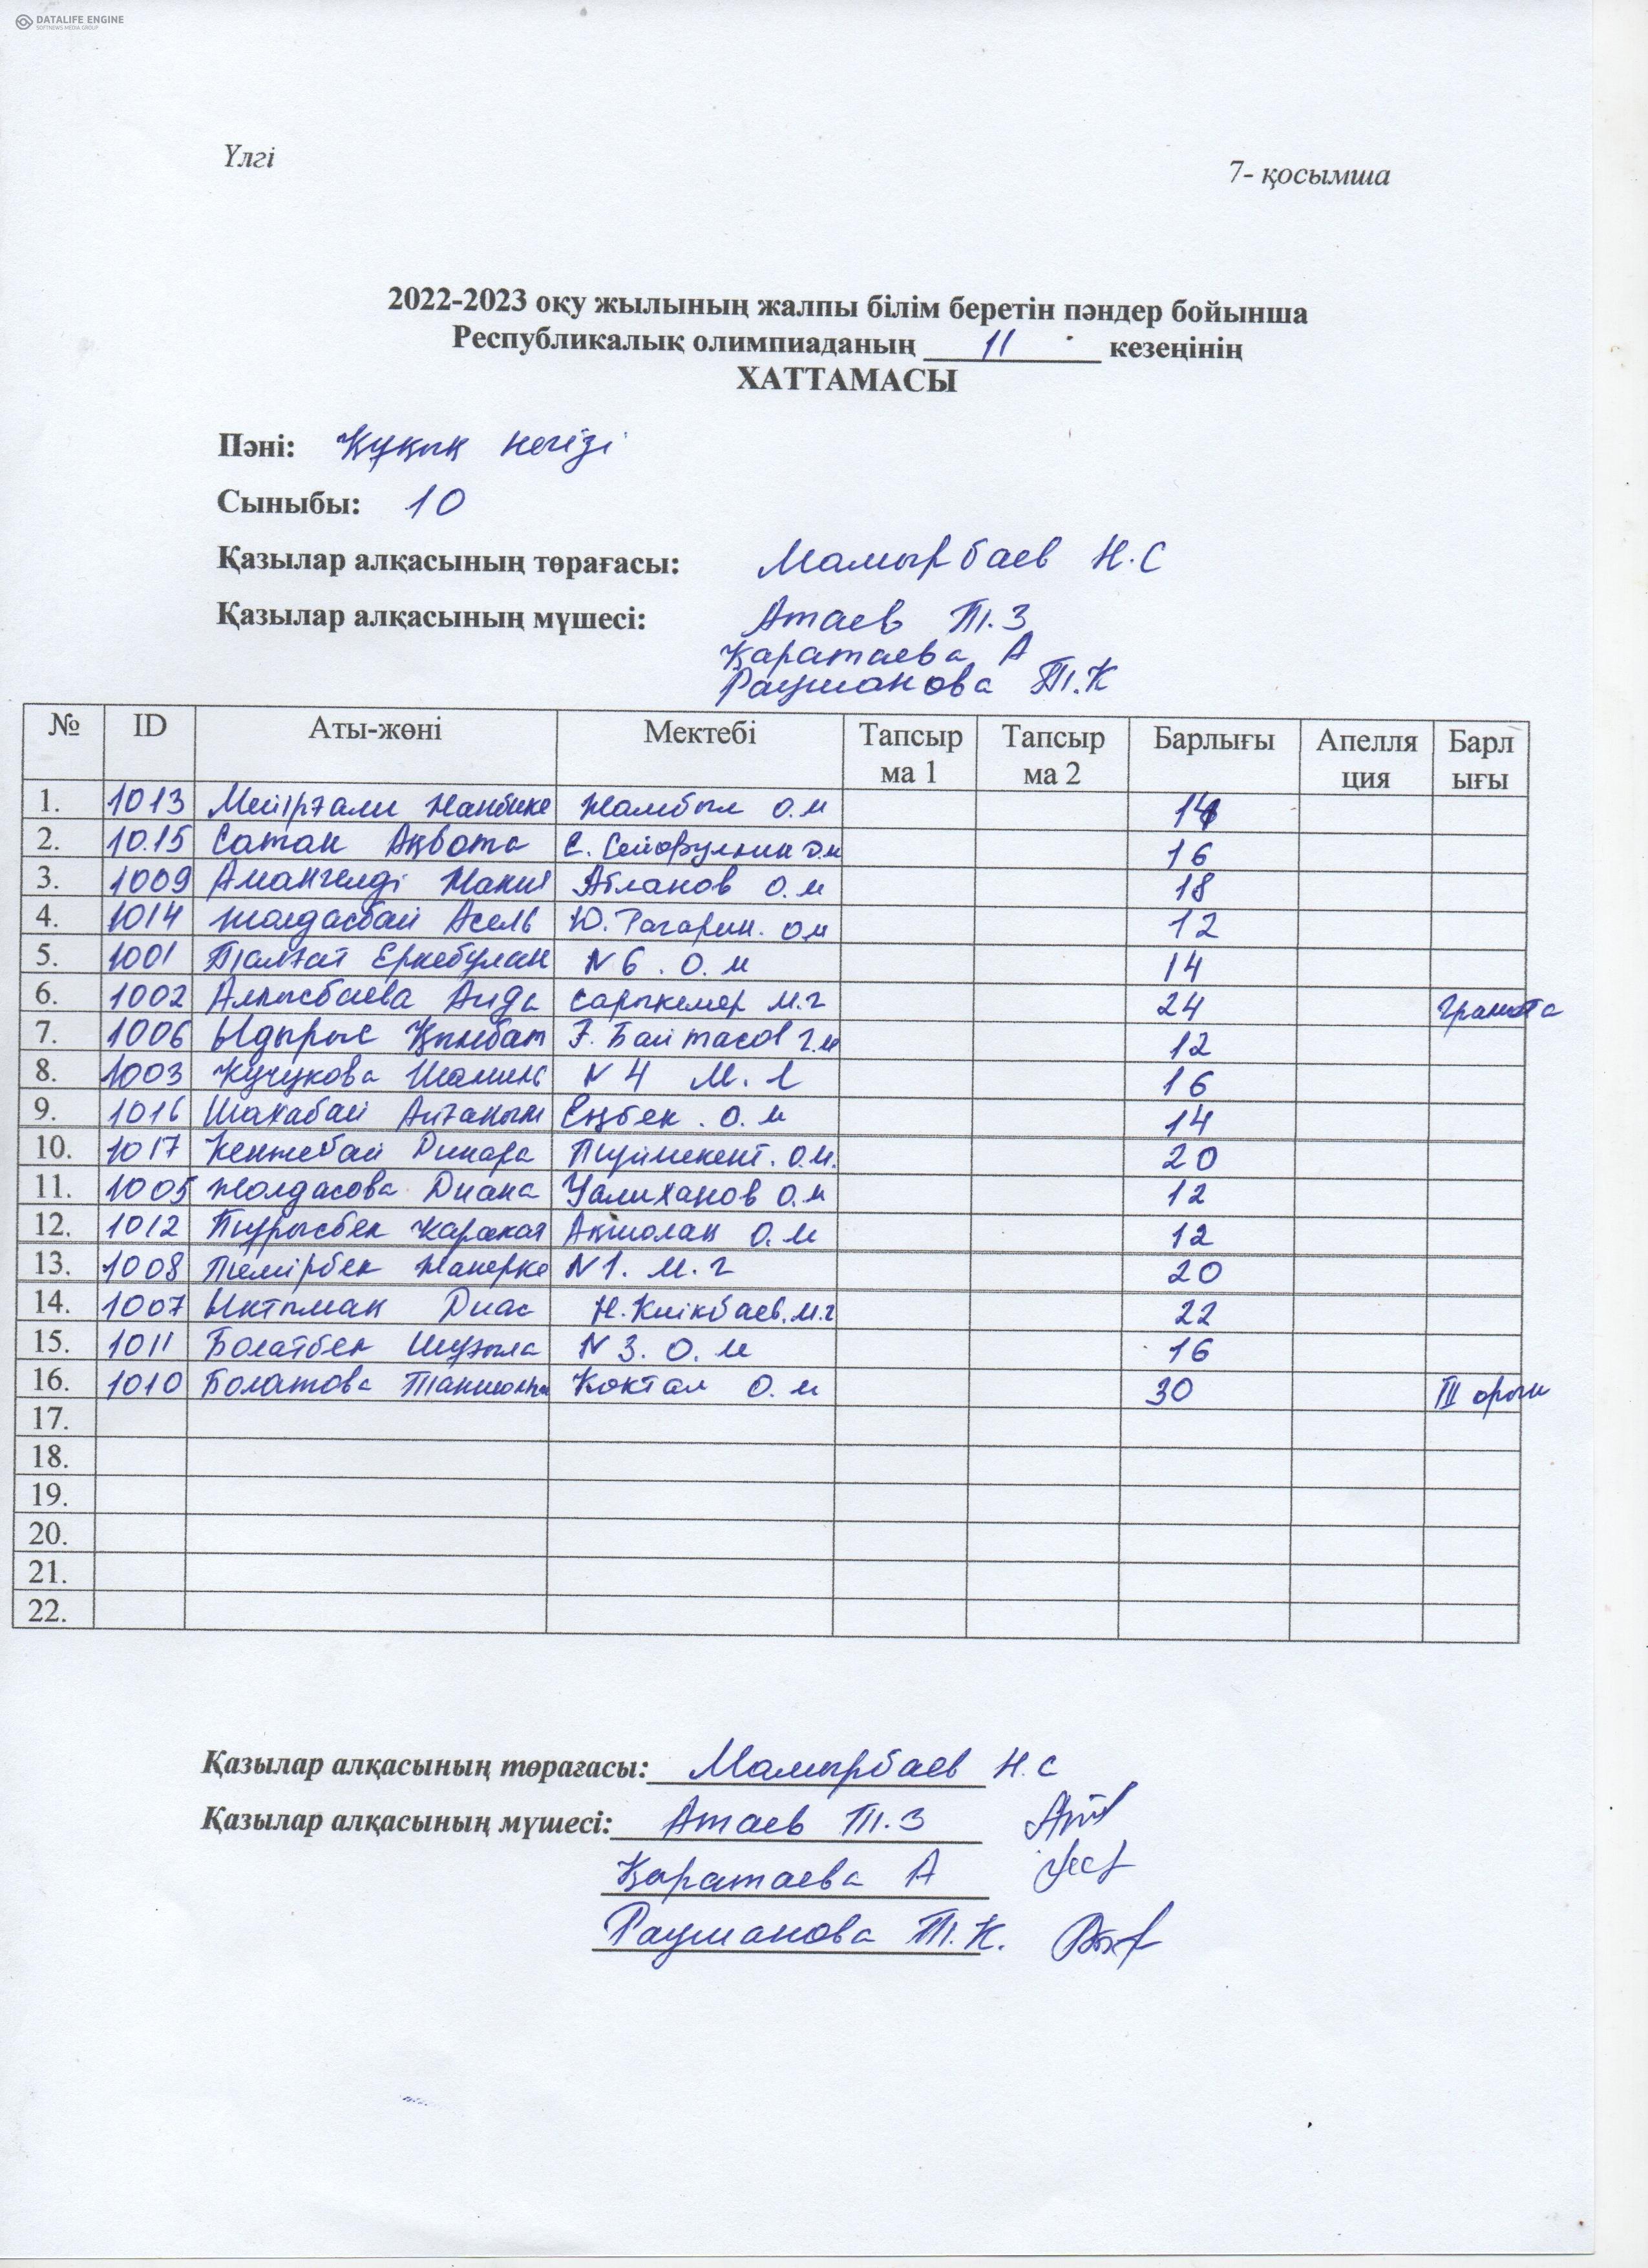 DATALIFE ENGINE
SOFTNEWS MEDIA GROUP
Үлгі
7- қосымша
2022-2023 оқу жылының жалпы білім беретін пәндер бойынша
Республикалық олимпиаданың 11 кезеңінің
ХАТТАМАСЫ
Пәні: Құқық негізі
Сыныбы: 10
Қазылар алқасының төрағасы: Мамырбаев Н.С
Қазылар алқасының мүшесі: Атаев Т.З
Қаратаева А
Раушанова Т.К
№ ID Аты-жөні Мектебі Тапсыр ма 1 Тапсыр ма 2 Барлығы Апелля ция Барл ығы
1. 1013 Мейірғали Жанбике Жамбыл о.м 14
2. 1015 Сатан Ақбота С. Сейфуллин о.м 16
3. 1009 Амангелді Жания о.м 18
4. 1014 Жолдасбай Асель Ю. Гагарин. ом 12
5. 1001 Талғат Еркебулан N 6. О. м 14
6. 1002 Алпысбаева Аида Сарыкемер м.г 24 грамота
7. 1006 Ыдырыс Қымбат Ғ. Байтасов г.м 12
8. 1003 Кучукова N 4 М. Л 16
9. 1016 Шахабай Айғаным Еңбек. о. м 14
10. 1017 Кенжебай Динара Түймекент. о.м. 20
11. 1005 Жолдасова Диана Уалиханов о.м 12
12. 1012 Тұрысбек Каракат Ақшолақ о. м 12
13. 1008 Темірбек Жанерке N1. м. г 20
14. 1007 Ықтиман Диас Н. Киікбаев. м.г 22
15. 1011 Болатбек Шуғыла N 3. О. м 16
16. 1010 Болатова Таншолпан Коктал о. м 30 III орын
17.
18.
19.
20.
21.
22.
Қазылар алқасының төрағасы: Мамырбаев Н.С
Қазылар алқасының мүшесі: Атаев Т.З
Қаратаева А
Раушанова Т.К.